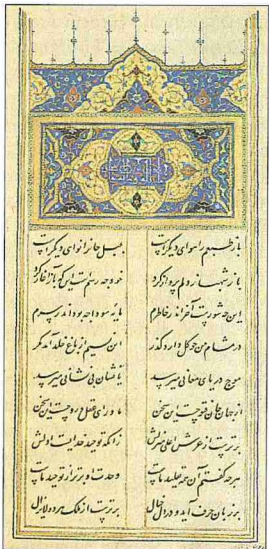 باز طبعم را هوای دیگرست بلبل جان را نوای دیگرست
باز شهباز دلم پرواز کرد خود چه رسم است این که باز آغاز کرد
این چه شورست آخر اندر خاطرم سودا چه بود اندر سرم
در مشام من چو گل دارد گذر این نسیم از باغ خلد آمد مگر
موج دریای معانی میرسد یا نشان بی نشانی میرسد
از جهان جان فتوحست این سخن ماورای عقل و روحست این سخن
برترست از عرش اعلی منزلش زانکه توحید خداست اولش
هرچه گفتم آن همه تقلید ماست وحدت او برتر از توحید ماست
بر زبان حرف آید و در دل خیال برترست از ملک لایزال